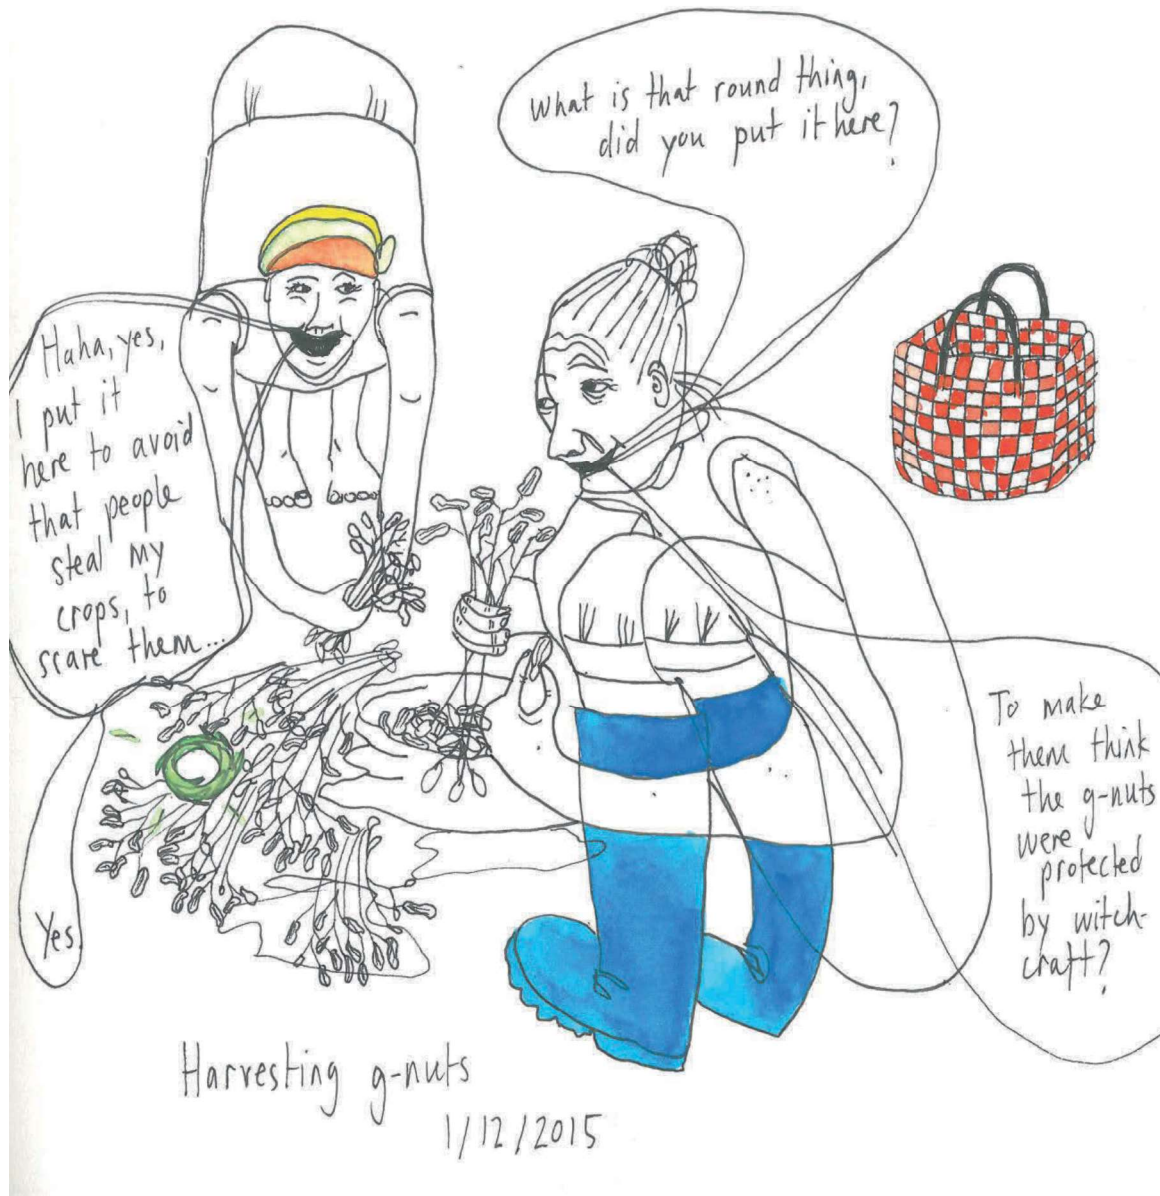 What is that round thing,
did you put it here?
Haha, yes,
I put it
here to avoid
that people
steal my
crops, to
scare them...
To make
them think
the g-nuts
were
protected
by witch-
craft?
Yes
Harvesting g-nuts
1/12/2015